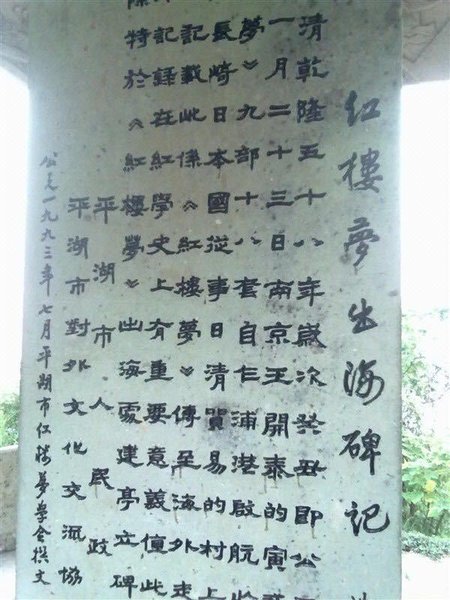 红樓夢出海碑記
清乾隆五十八年歲次癸丑即公
一月二十三日南京王開泰的寅
夢》九部十八套自乍浦港啟航
長崎日本國從事日清貿易的村上
記載此係《紅樓夢》傳至海外走
記録在紅學史上有重要意義值此
際特於《紅樓夢》出海處建亭立碑
平湖市人民政
平湖市對外文化交流協
公元一九九三年七月平湖市红楼夢学会撰文